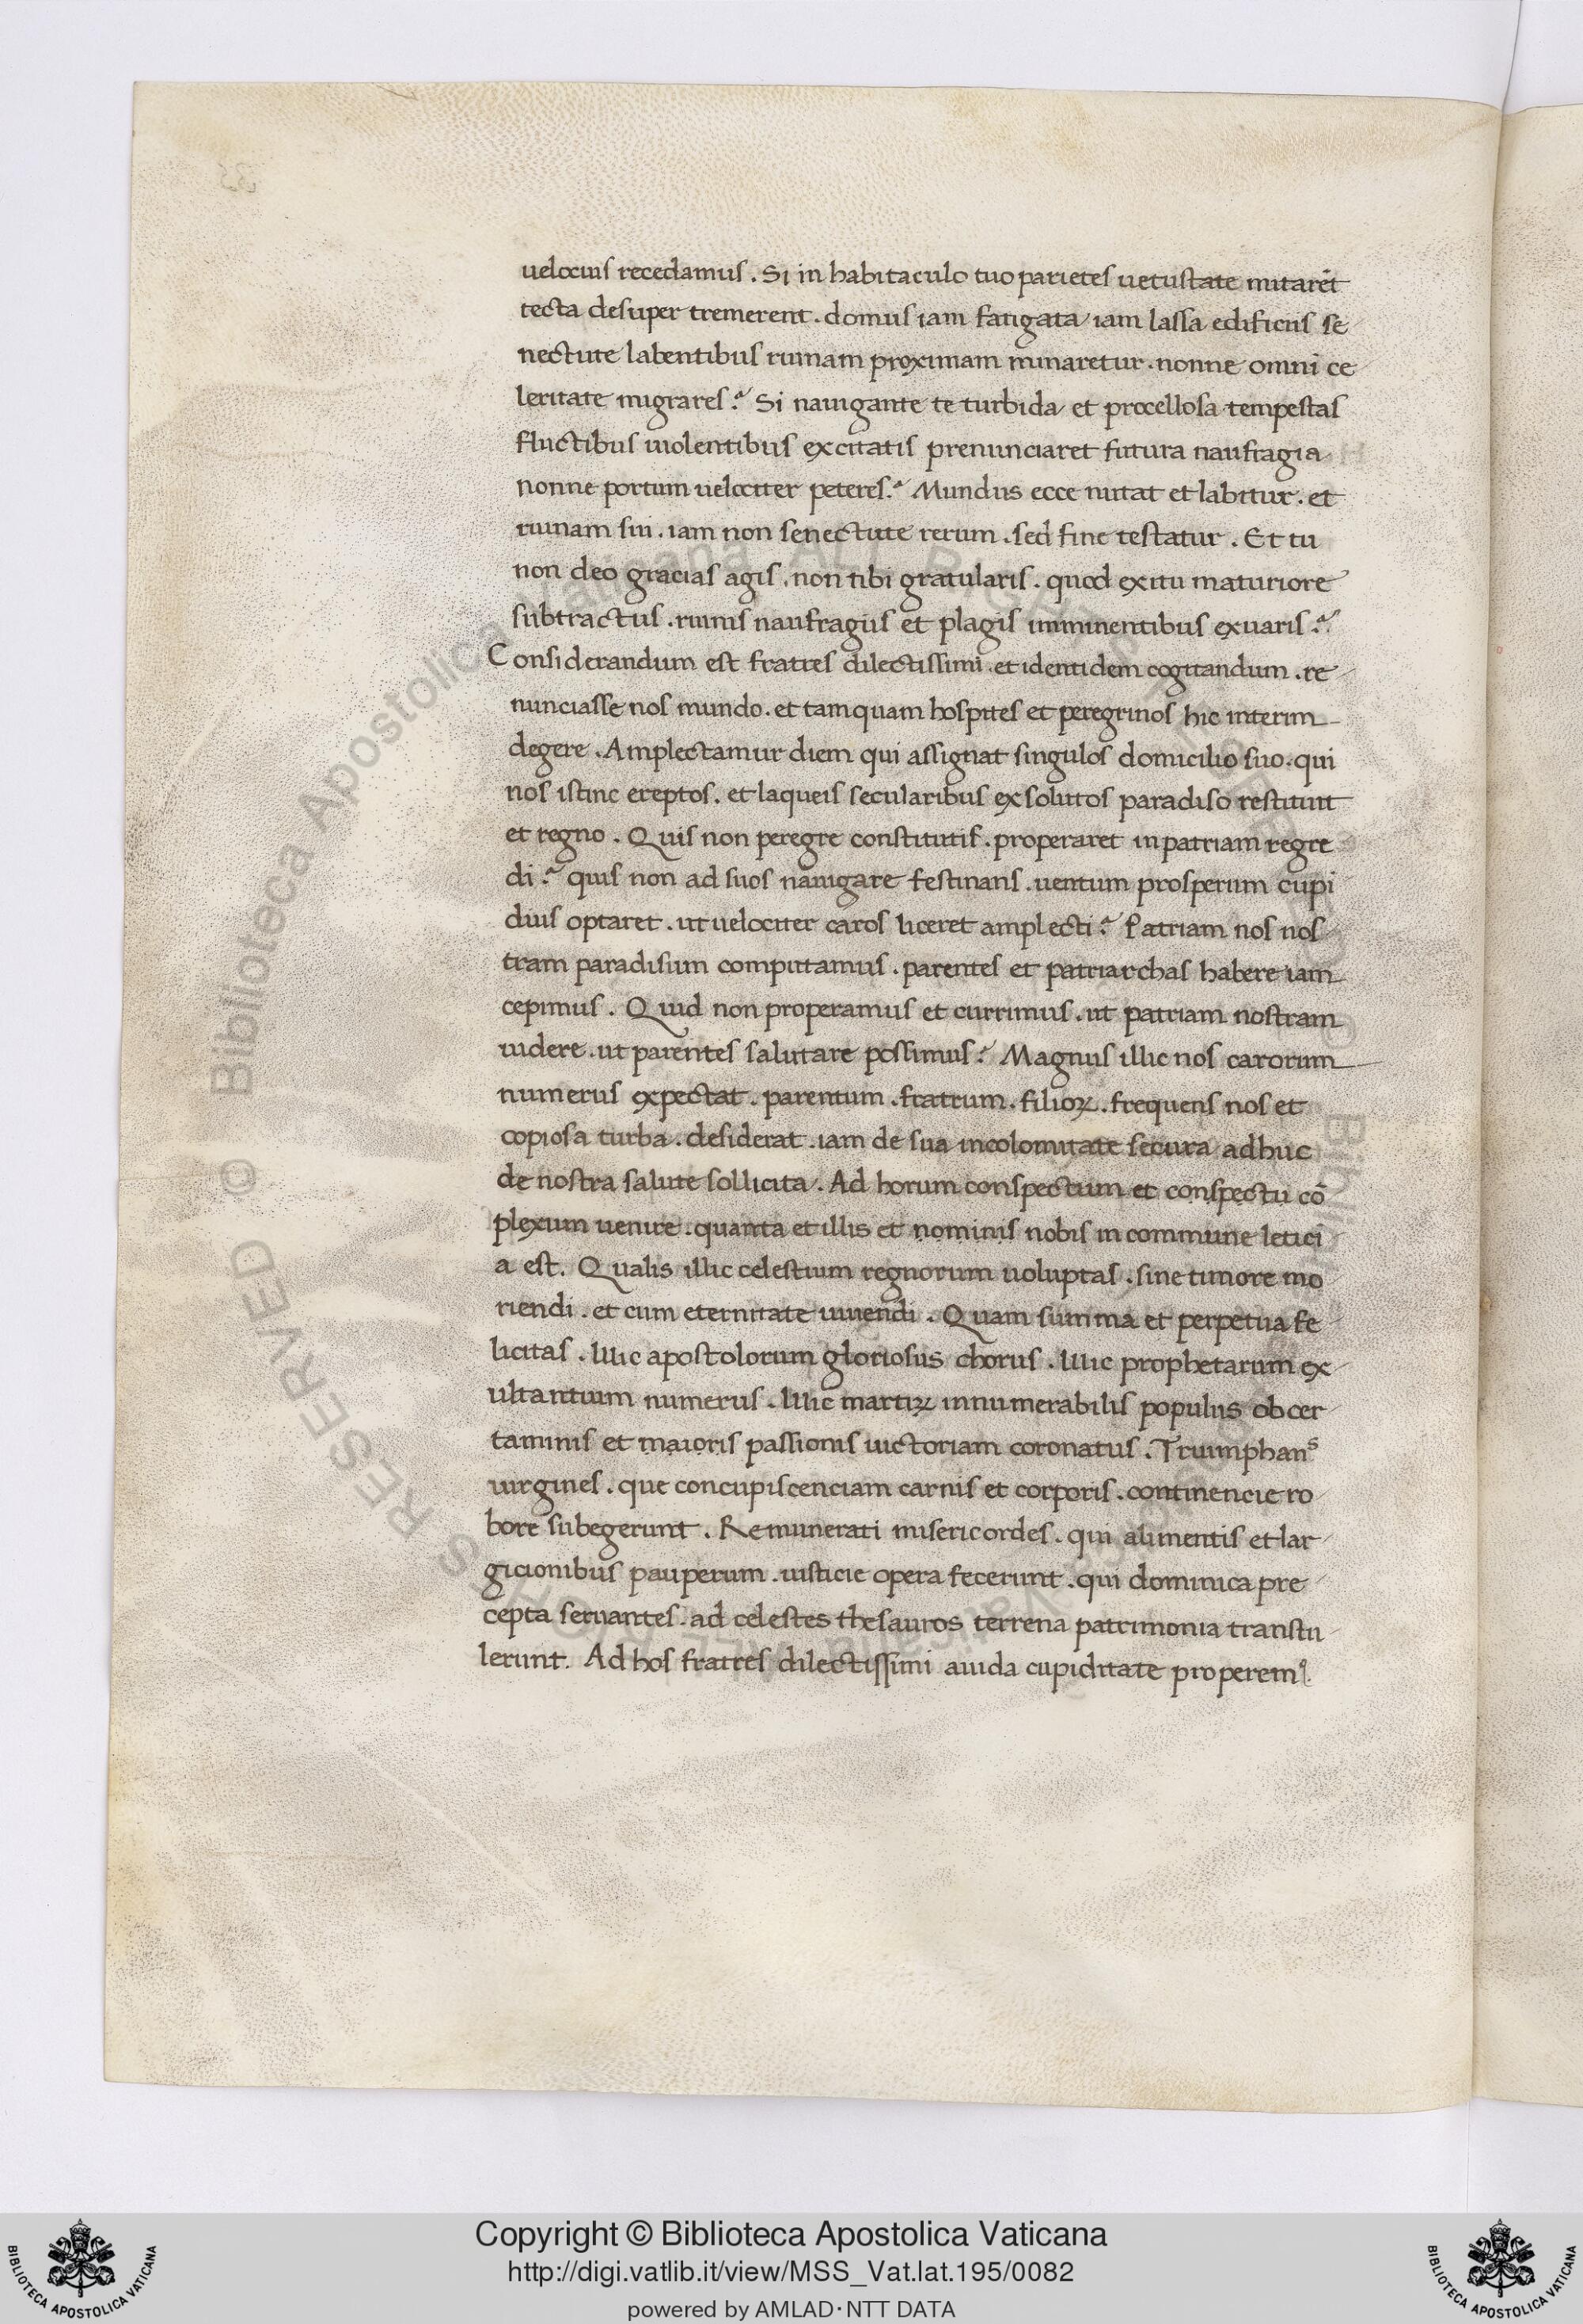 uelocius recedamus . Si in habitaculo tuo parietes uetustate nutarēt
tecta desuper tremerent . domus iam fatigata iam lassa edificiis se
nectute labentibus ruinam proximam minaretur . nonne omni ce
leritate migrares ? Si nauigante te turbida et procellosa tempestas
fluctibus uiolentibus excitatis prenunciaret futura naufragia
nonne portum uelociter peteres ? Mundus ecce nutat et labitur . et
ruinam sui . iam non senectute rerum . sed fine testatur . Et tu
non deo gracias agis . non tibi gratularis . quod exitu maturiore
subtractus . ruinis naufragiis et plagis imminentibus exuaris ?
Considerandum est fratres dilectissimi . et identidem cogitandum . re
nunciasse nos mundo . et tamquam hospites et peregrinos hic interim
degere . Amplectamur diem qui assignat singulos domicilio suo . qui
nos istinc ereptos . et laqueis secularibus exsolutos paradiso restituit
et regno . Quis non peregre constitutis . properaret in patriam regre
di ? quis non ad suos nauigare festinans . uentum prosperum cupi
dius optaret . ut uelociter caros liceret amplecti ? Patriam nos nos
tram paradisum computamus . parentes et patriarchas habere iam
cepimus . Quid non properamus et currimus . ut patriam nostram
uidere . ut parentes salutare possimus ? Magnus illic nos carorum
numerus expectat . parentum . fratrum . filioꝝ . frequens nos et
copiosa turba . desiderat . iam de sua incolomitate secura adhuc
de nostra salute sollicita . Ad horum conspectum et conspectu cō
plexum uenire . quanta et illis et nominis nobis in commune letici
a est . Qualis illic celestium regnorum uoluptas . sine timore mo
riendi . et cum eternitate uiuendi . Quam summa et perpetua fe
licitas . Illic apostolorum gloriosus chorus . Illic prophetarum ex
ultantium numerus . Illic martiꝝ innumerabilis populus ob cer
taminis et maioris passionis uictoriam coronatus . Triumphans
uirgines . que concupiscenciam carnis et corporis . continencie ro
bore subegerunt . Remunerati misericordes . qui alimentis et lar
gicionibus pauperum . iusticie opera fecerunt . qui dominica pre
cepta seruantes . ad celestes thesauros terrena patrimonia transtu
lerunt . Ad hos fratres dilectissimi auida cupiditate properemꝰ .
Copyright © Biblioteca Apostolica Vaticana
http://digi.vatlib.it/view/MSS_Vat.lat.195/0082
powered by AMLAD·NTT DATA
BIBLIOTECA APOSTOLICA VATICANA
BIBLIOTECA APOSTOLICA VATICANA